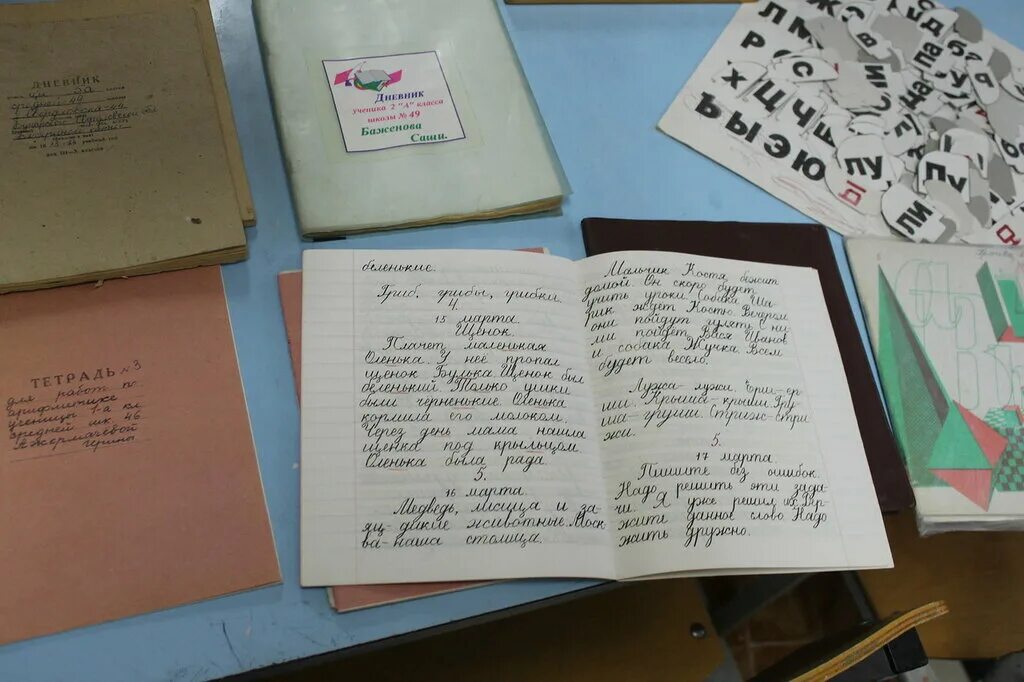 ДНЕВНИК
Дневник
ученика 2 "А" класса
школы № 49
Баженова
Саши.
ТЕТРАДЬ №3
для работ по
арифметике
ученицы 1-а кл.
средней шк. 46
беленькие.
Гриб, грибы, грибки.
4.
15 марта.
Щенок.
Плачет маленькая
Оленька. У неё пропал
щенок Булька. Щенок был
беленький. Только ушки
были черненькие. Оленька
кормила его молоком.
Через день мама нашла
щенка под крыльцом.
Оленька была рада.
5.
16 марта.
Медведь, лисица и за-
яц - дикие животные. Моск
ва - наша столица.
Мальчик Костя бежит
домой. Он скоро будет
учить уроки. Собака Ша-
рик ждёт Костю. Вечером
они пойдут гулять. С ни-
ми пойдёт Вася Иванов
и собака Жучка. Всем
будет весело.
Лужа - лужи.
ши. Крыша - крыши. Гру-
ша - груши. Стриж - стри
жи.
5.
17 марта.
Пишите без ошибок.
Надо решить эти зада-
чи. Я уже решил их. Дер-
жите данное слово. Надо
жить дружно.
Л М
Р С
Х Ц Ч
Ъ Ы Э Ю
ЛУ
ПУ
ПИ
Ы